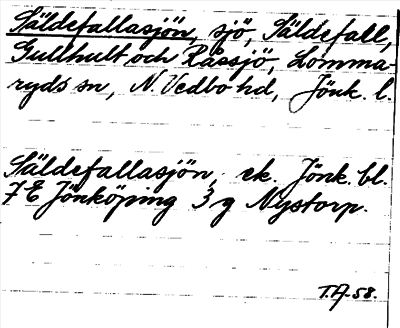 Säldefallasjön, sjö, Säldefall,
Gullhult och Rässjö, Lomma-
ryds sn, N. Vedbo hd, Jönk. l.
Säldefallasjön, ek. Jönk. bl.
7 E Jönköping 3 g Nystorp.
T.A-58.